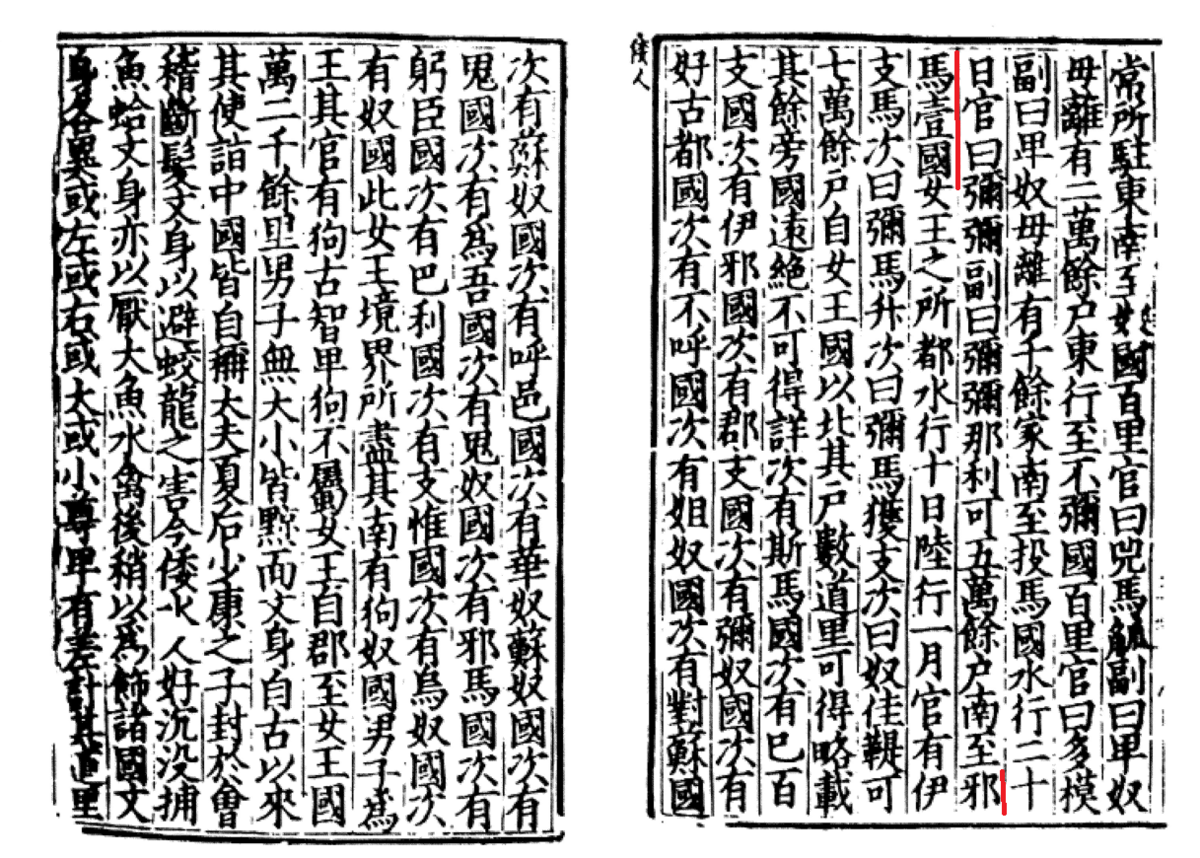 常所駐東南至奴國百里官曰兕馬觚副曰卑奴
毋離有二萬餘戶東行至不彌國百里官曰多模
副曰卑奴毋離有千餘家南至投馬國水行二十
日官曰彌彌副曰彌彌那利可五萬餘戶南至邪
馬壹國女王之所都水行十日陸行一月官有伊
支馬次曰彌馬升次曰彌馬獲支次曰奴佳鞮可
七萬餘戶自女王國以北其戶數道里可得略載
其餘旁國遠絕不可得詳次有斯馬國次有巳百
支國次有伊邪國次有郡支國次有彌奴國次有
好古都國次有不呼國次有姐奴國次有對蘇國
倭人
次有蘇奴國次有呼邑國次有華奴蘇奴國次有
鬼國次有爲吾國次有鬼奴國次有邪馬國次有
躬臣國次有巴利國次有支惟國次有烏奴國次
有奴國此女王境界所盡其南有狗奴國男子爲
王其官有狗古智卑狗不屬女王自郡至女王國
萬二千餘里男子無大小皆黥面文身自古以來
其使詣中國皆自稱大夫夏后少康之子封於會
稽斷髮文身以避蛟龍之害今倭水人好沉没捕
魚蛤文身亦以厭大魚水禽後稍以爲飾諸國文
身各異或左或右或大或小尊卑有差計其道里